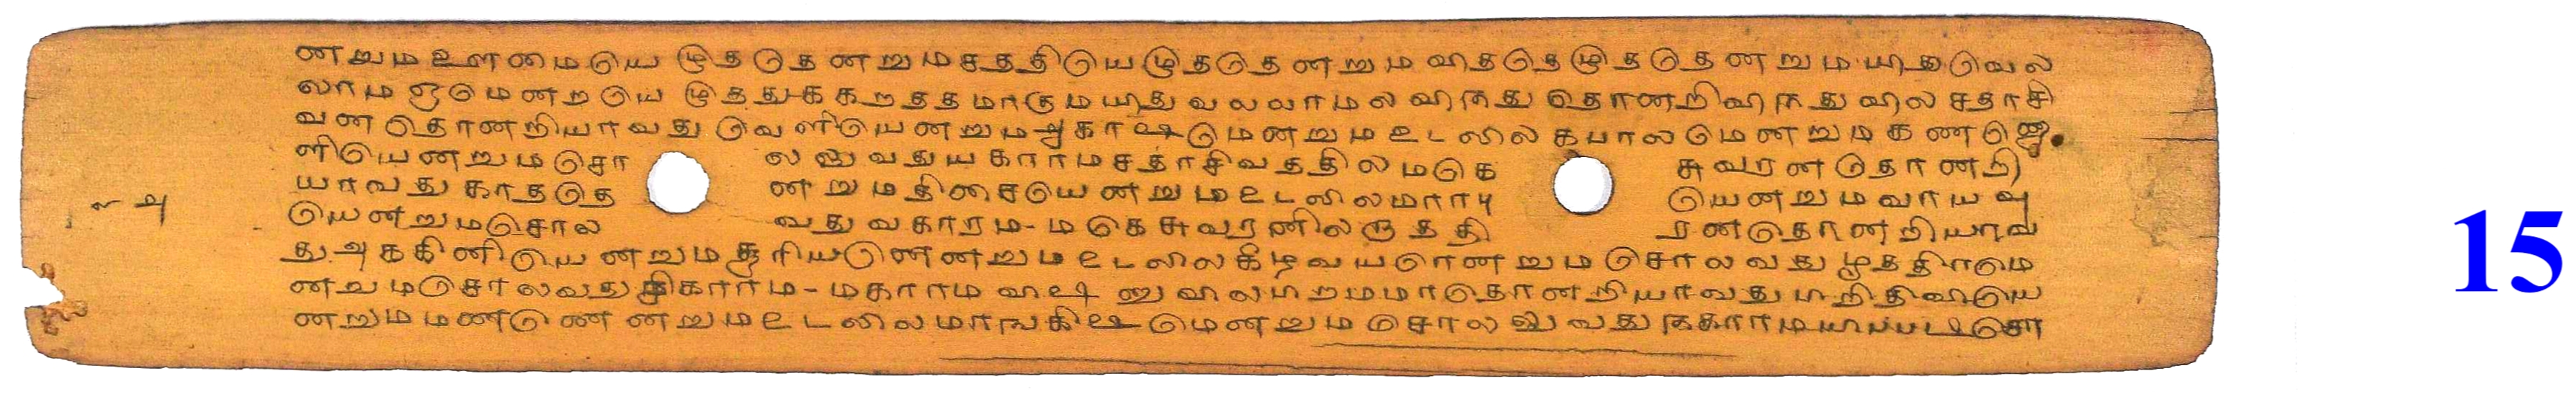 னறும உளமையெ ழுததெனறும சததியெழுததெனறும விததெழுததெனறும யிதுவெல
லாம ஓமெனறெ யெழுததுக கறததமாகும யிதுவலலாமல விநது தொனறி விநதுவில சதாசி
வன தொனறியாவது வெளியெனறும அகாஷமெனறும உடலில கபாலமெனறும கணணெ
ளியெனறும சொ லலுவது யகாரம சதாசிவததில மகெ சுவரன தொனறி
யாவது காததெ னறும திசையெனறும உடலில மாரபு யெனறும வாயவு
யெனறும சொல வது வகாரம - மகெசுவரனில ருததி ரன தொனறியாவ
து அககினியெனறும சூரியனெனறும உடலில கீழவயறெனறும சொலவது ருததிரமெ
னறும சொலவது சிகாரம - மகாரம விஷணுவில பிறமமா தொனறியாவது பிறிதிவியெ
னறும மணணெனறும உடலில மாஙகிஷமெனறும சொலலுவது நகாரம யிபபடிசொ
15